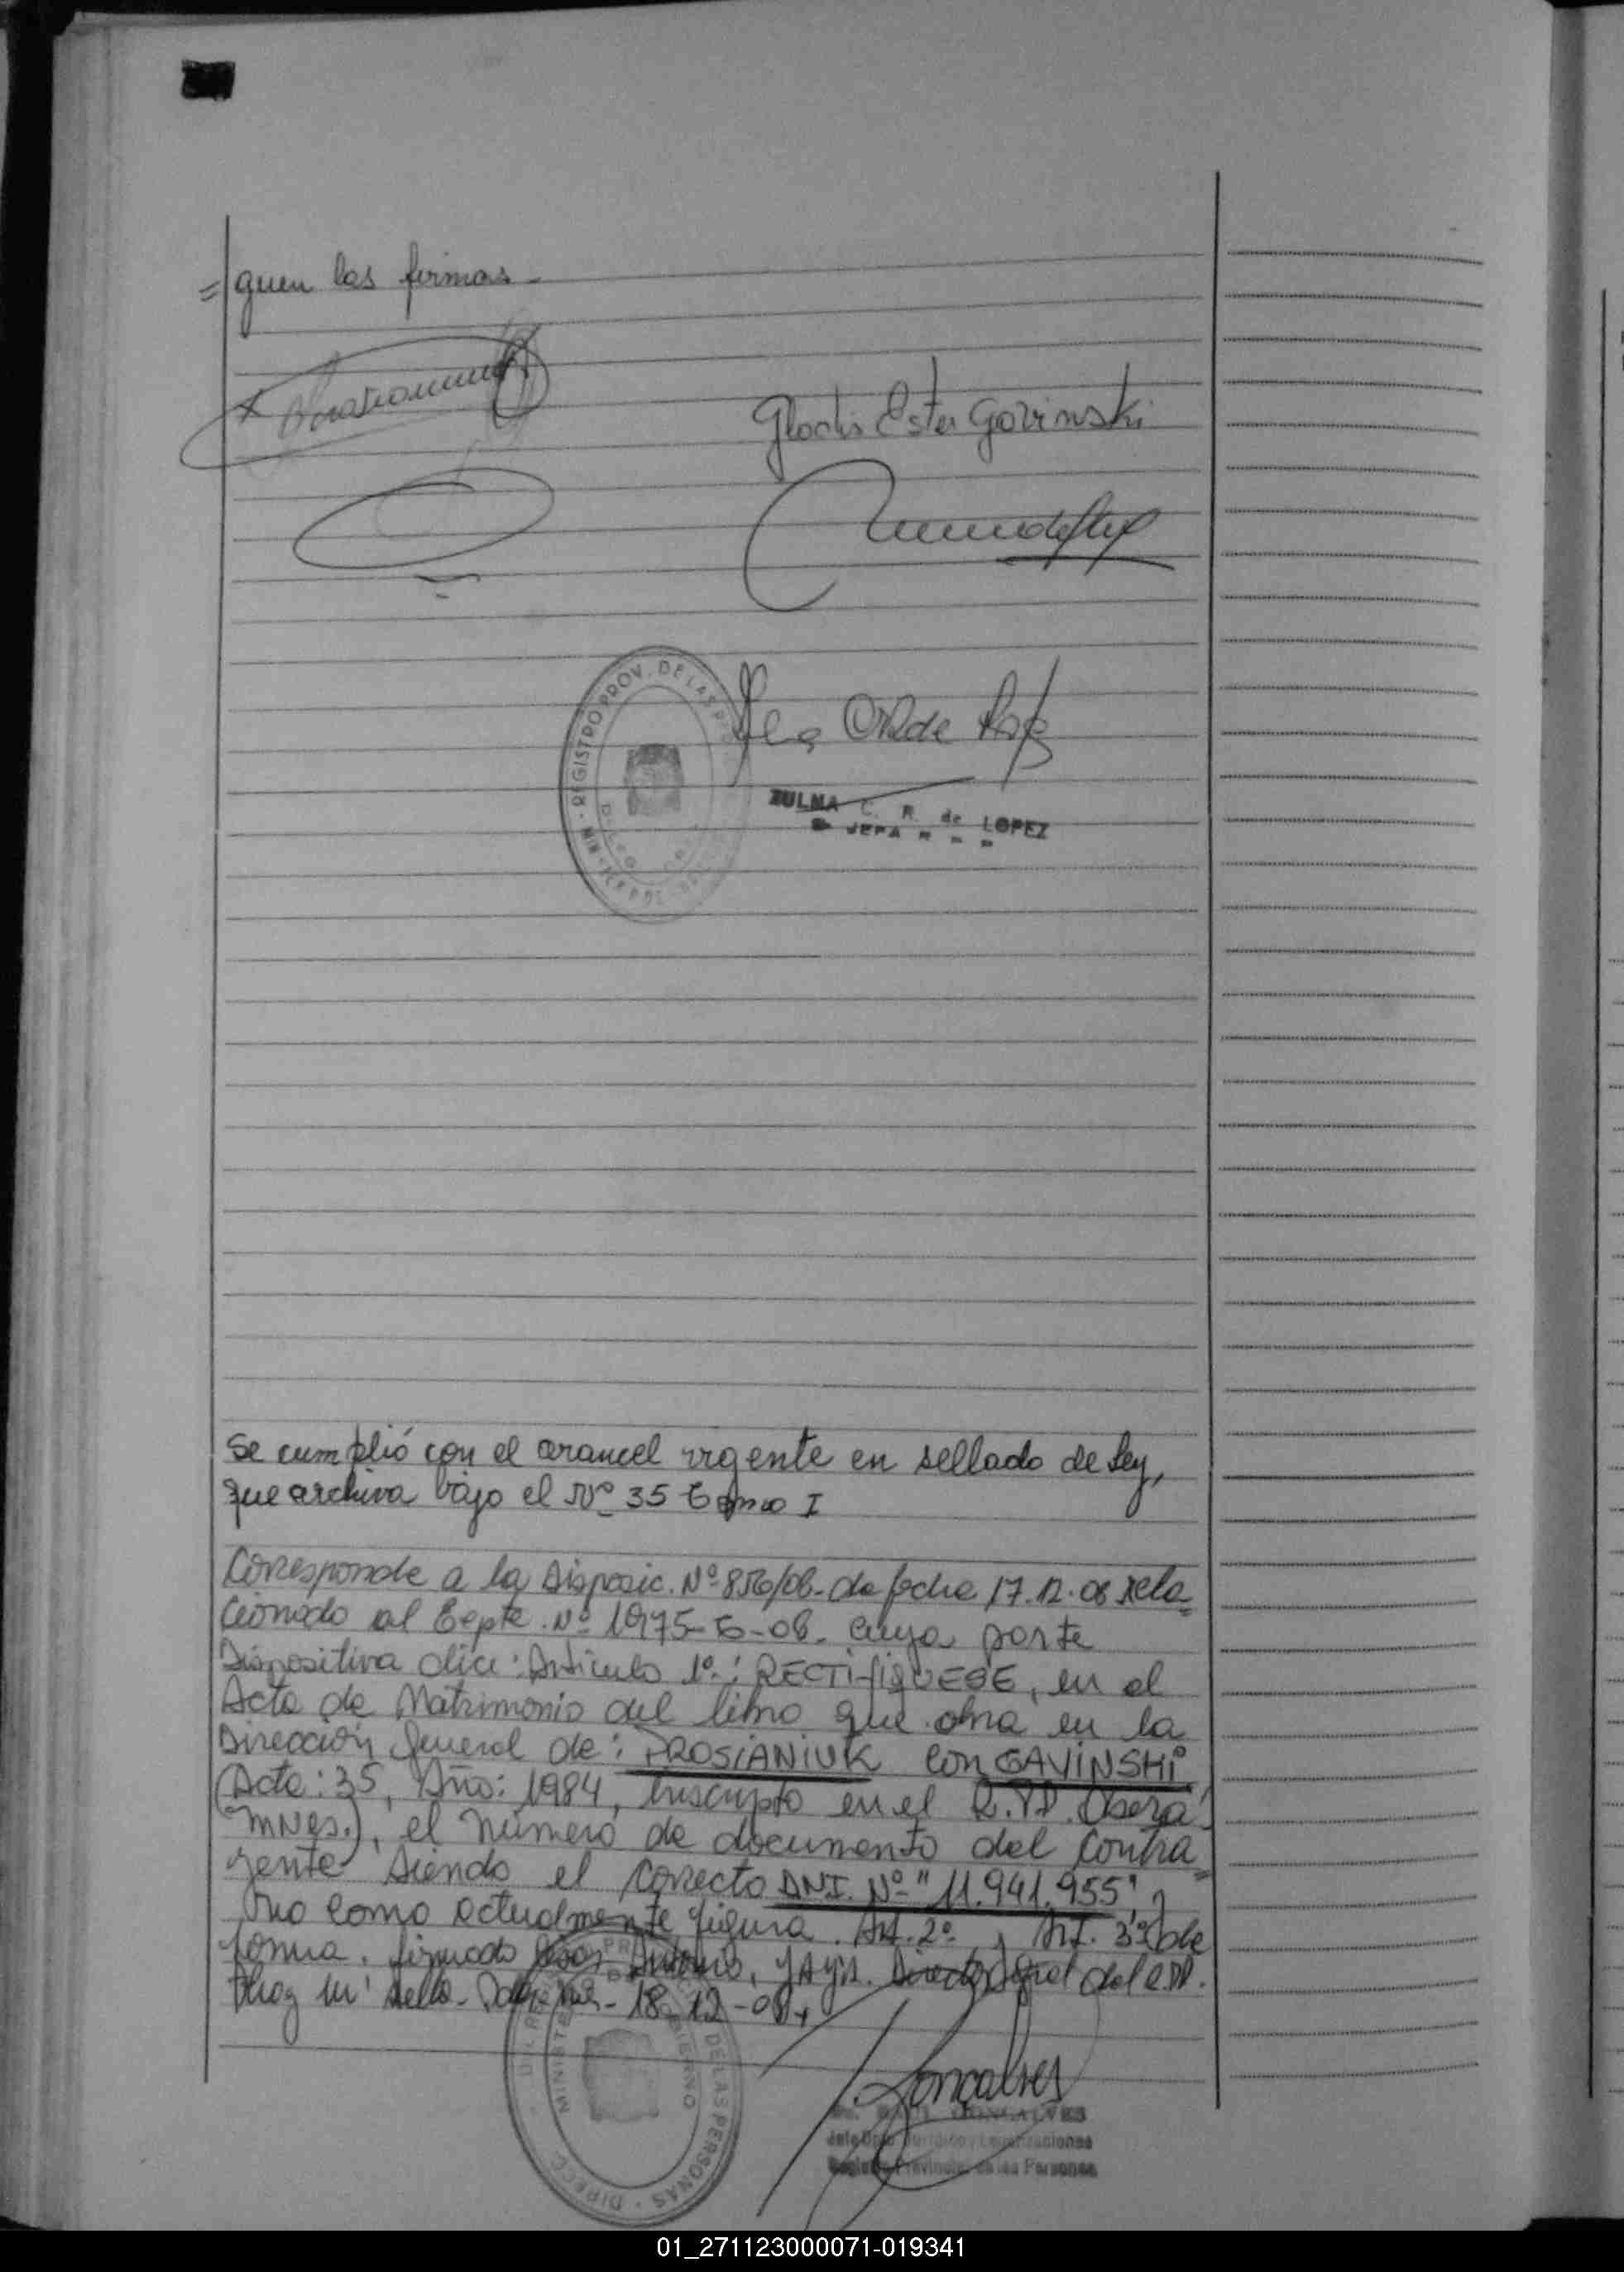 = quen las firmas -
Gladis Ester Gavinski
REGISTRO PROV. DE LAS P
ZULMA C. R. de LOPEZ
JEFA
Se cumplió con el arancel vigente en sellado de Ley,
que archiva bajo el Nº 35 Tomo I
Corresponde a la Disposic. Nº 856/08 - de fecha 17.12.08 rela=
cionado al Expte. Nº 1975-G-08 - cuya parte
Dispositiva dice: Artículo 1º: RECTIFIQUESE, en el
Acta de Matrimonio del libro que obra en la
Dirección General de: PROSIANIUK con GAVINSKI
(Acta: 35, Año: 1984, inscripto en el R.P.P. Oberá-
MNES.), el número de documento del contra=
yente siendo el correcto DNI. Nº "11.941.955",
y no como actualmente figura. Art. 2º y Art. 3º de
forma. firmado Antonio, Director Gral del R.P.P.
Hay un sello - 18-12-08,
Goncalves
MINISTE BIERNO
DE LAS PERSONAS - DIRECC
GONCALVES
Jefe Dpto Jurídico y Legalizaciones
Registro Provincial de las Personas
01_271123000071-019341